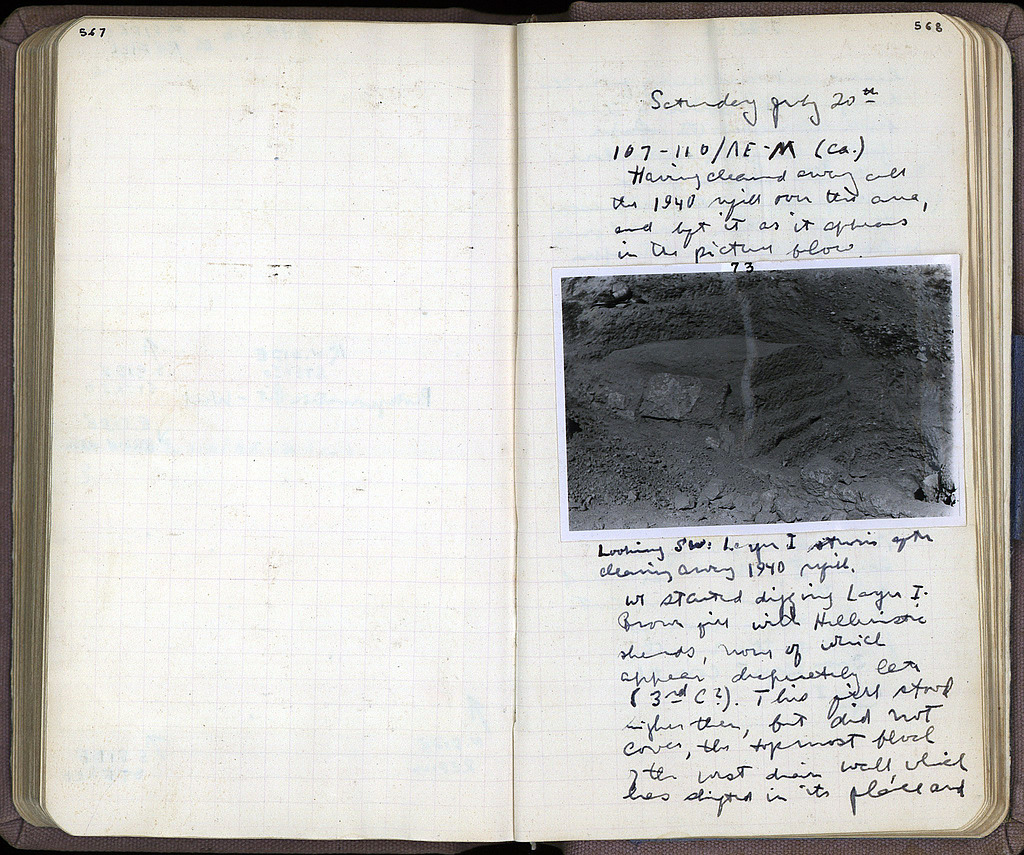 567
568
Saturday July 20th
107-110/ΛE-M (ca.)
Having cleaned away all
the 1940 refill over this area,
and left it as it appears
in the picture below.
73
Looking SW: Layer I strosis after
clearing away 1940 refill.
We started digging Layer I.
Brown fill with Hellenistic
sherds, none of which
appear desperately late
(3rd C?). This fill stood
higher than, but did not
cover, the topmost block
of the west drain wall which
has slipped in its place and